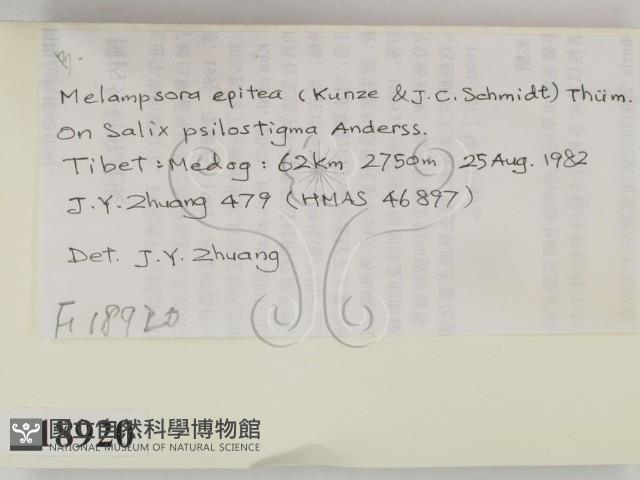 Melampsora epitea (Kunze & J.C. Schmidt) Thüm.
On Salix psilostigma Anderss.
Tibet: Medog: 62km 2750m 25 Aug. 1982
J.Y. Zhuang 479 (HMAS 46897)
Det. J.Y. Zhuang
F 18920
18920
國立自然科學博物館
NATIONAL MUSEUM OF NATURAL SCIENCE